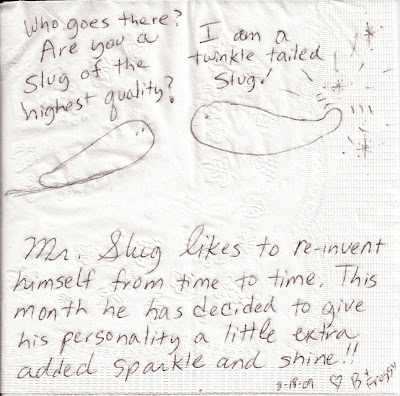 Who goes there?
Are you a
Slug of the
highest quality?
I am a
twinkle tailed
Slug!
Mr. Slug likes to re-invent
himself from time to time. This
month he has decided to give
his personality a little extra
added sparkle and shine!!
3-18-09 ♡ B + Froggy